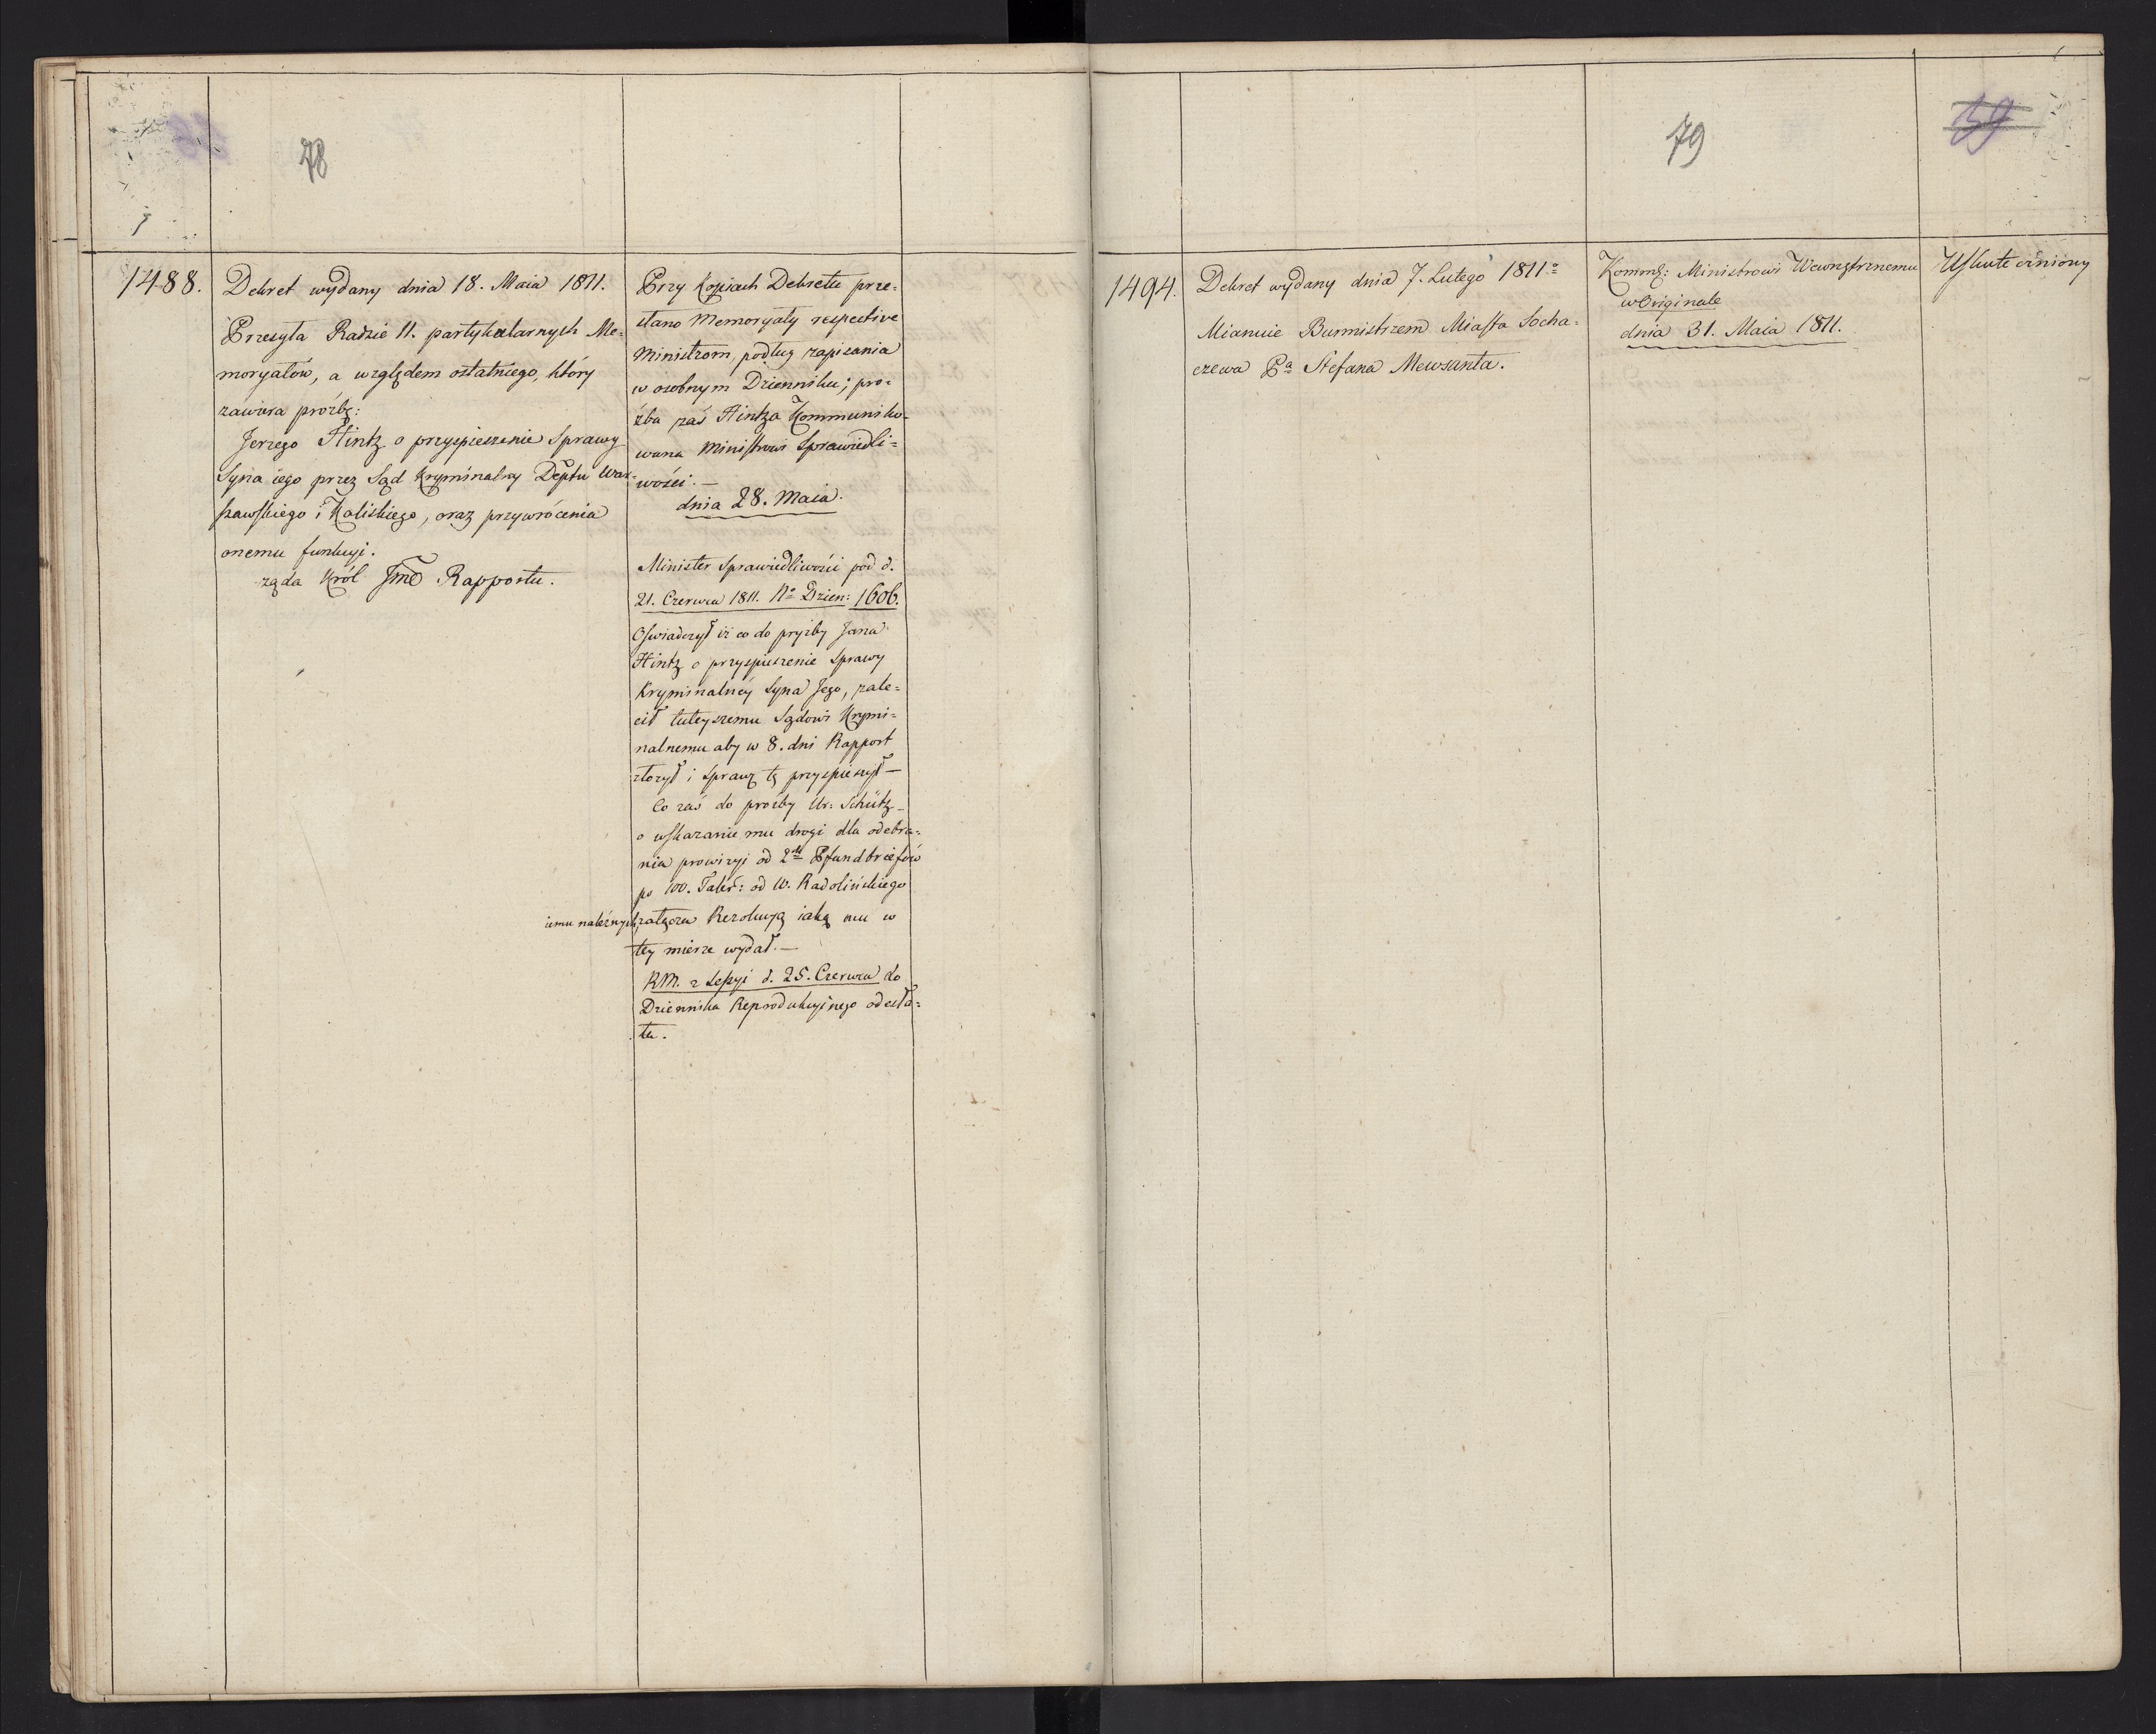 78
1488.
Dekret wydany dnia 18. Maia 1811.
Przesyła Radzie 11. partykularnych Me=
moryałów, a względem ostatniego, który
zawiera prozbę:
Jerzego Hintz o przyspieszenie Sprawy
Syna iego przez Sąd Kryminalny Deptu War=
szawskiego i Kaliskiego, oraz przywrócenia
onemu funkcyi.
rząda Król Jmć Rapportu.
Przy Kopiach Dekretu prze=
słano Memoryały respective
Ministrom, podług zapisania
w osobnym Dzienniku; pro=
źba zaś Hintza Kommuniko=
wana Ministrowi Sprawiedli=
wości. —
dnia 28. Maia.
Minister Sprawiedliwości pod d.
21. Czerwca 1811. No Dzien: 1606.
Oświadczył iż co do proźby Jana
Hintz o przyspieszenie Sprawy
Kryminalnéy Syna Jego, zale=
cił tuteyszemu Sądowi Krymi=
nalnemu aby w 8. dni Rapport
złożył i sprawę tę przyspieszył —
Co zaś do proźby Ur: Schütz
o wskazanie mu drogi dla odebra=
nia prowizyi od 2ch Pfandbriefów
po 100. Talar: od W. Radolińskiego
iemu należnych, załącza Rezolucyą iaką mu w
tey mierze wydał. —
RM. z Sessyi d. 25. Czerwca do
Dziennika Reprodukcyinego odesła=
ła.
79
59
1494.
Dekret wydany dnia 7. Lutego 1811o
Mianuie Burmistrzem Miasta Socha=
czewa Pa Stefana Mewsanta.
Kommk: Ministrowi Wewnętrznemu
w Originale
dnia 31. Maia 1811.
Uskuteczniony